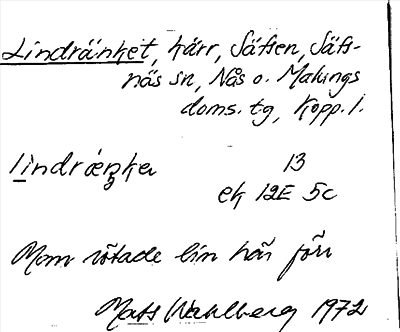 Lindränket, kärr, Säfsen, Säfs-
näs sn, Nås o. Malungs
doms. tg, Kopp. l.
lindræŋka 13
ek 12E 5c
Man rötade lin här förr
Mats Wahlberg 1972